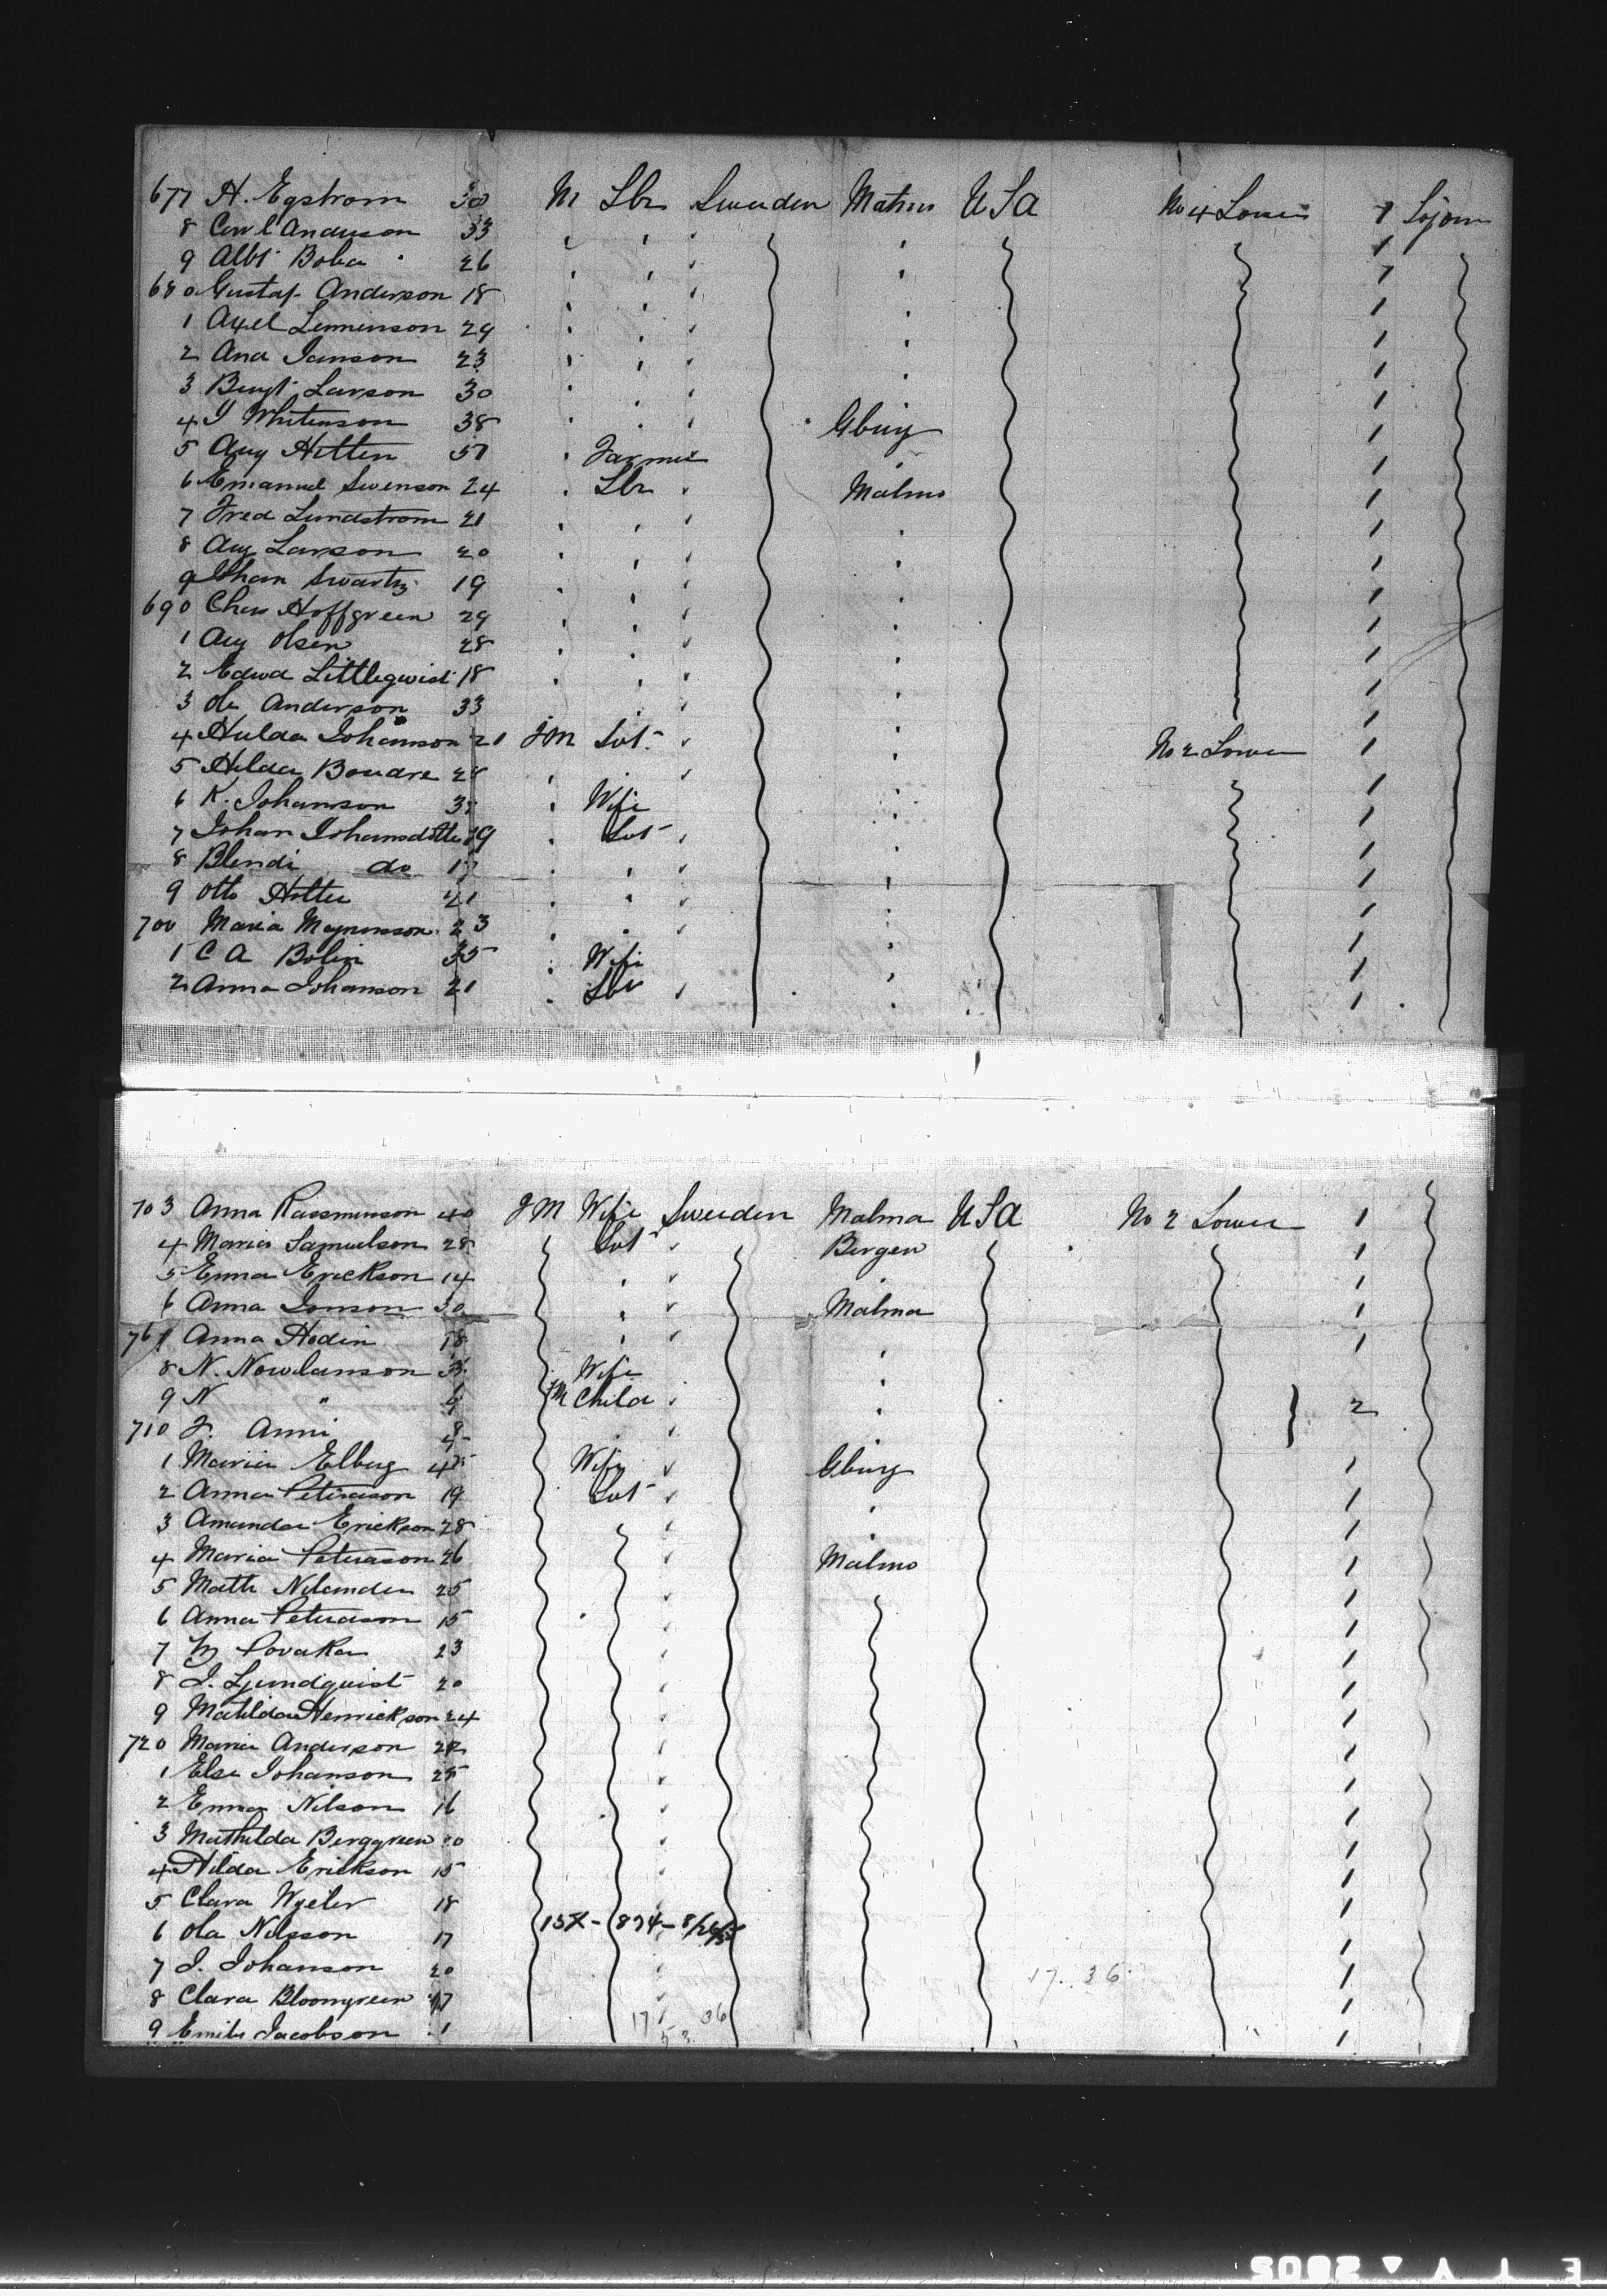 677 H. Egstrom 30 M Lbr Sweden Malmo USA No 4 Lower 1 Sojourn
8 Carl Anderson 33 " " " " 1
9 Albt Boha 26 " " " " 1
680 Gustaf Anderson 18 " " " " 1
1 Axel Lennenson 29 " " " " 1
2 And Janson 23 " " " " 1
3 Bengt Larson 30 " " " " 1
4 J Whitenson 38 " " " Gburg 1
5 Aug Hitten 57 " Farmer " " 1
6 Emanuel Swenson 24 " Lbr " Malmo 1
7 Fred Lundstrom 21 " " " " 1
8 Aug Larson 20 " " " " 1
9 Johan Swartz 19 " " " " 1
690 Chas Hoffgreen 29 " " " " 1
1 Aug Olsen 28 " " " " 1
2 Edwd Littleqwist 18 " " " " 1
3 Ole Anderson 33 " " " " 1
4 Hulda Johanson 21 FM Svt " " No 2 Lower 1
5 Hilda Boudre 28 " " " 1
6 K. Johanson " Wife " 1
7 Johan Johansdotter 19 " Svt " " 1
8 Blendi do 17 " " " " 1
9 Otto Hitter 21 " " " " 1
700 Maria Magnusson 23 " " " " 1
1 C A Bolin 35 " Wife " 1
2 Anna Johanson 21 " Lbr " " 1
703 Anna Rassmusson 40 FM Wife Sweden Malma USA No 2 Lower 1
4 Maria Samuelson 28 Svt " Bergen 1
5 Emma Erickson 14 " " 1
6 Anna Jonson 30 " " Malma 1
767 Anna Hedin 18 " " " 1
8 N. Nowlanson Wife "
9 N " 9 M Child " " 2
710 F. Anni 8 " "
1 Maria Elburg 45 Wife " Gburg 1
2 Anna Peterson 19 Svt " " 1
3 Amanda Erickson 28 " " 1
4 Maria Peterson 26 " Malmo 1
5 Math Nilander 25 " 1
6 Anna Peterson 15 " 1
7 M Povaka 23 " 1
8 J. Ljundquist 20 " 1
9 Matilda Henrickson 24 " 1
720 Maria Anderson 22 " 1
1 Else Johanson 25 " 1
2 Emma Nilson 16 " 1
3 Mathilda Berggreen 20 " 1
4 Hilda Erickson 15 " 1
5 Clara Wyeler 18 1
6 Ola Nilsson 17 15X-874- 1
7 J. Johanson 20 17. 36 1
8 Clara Bloomgreen 17 17 36 1
9 Emili Jacobson 53 1